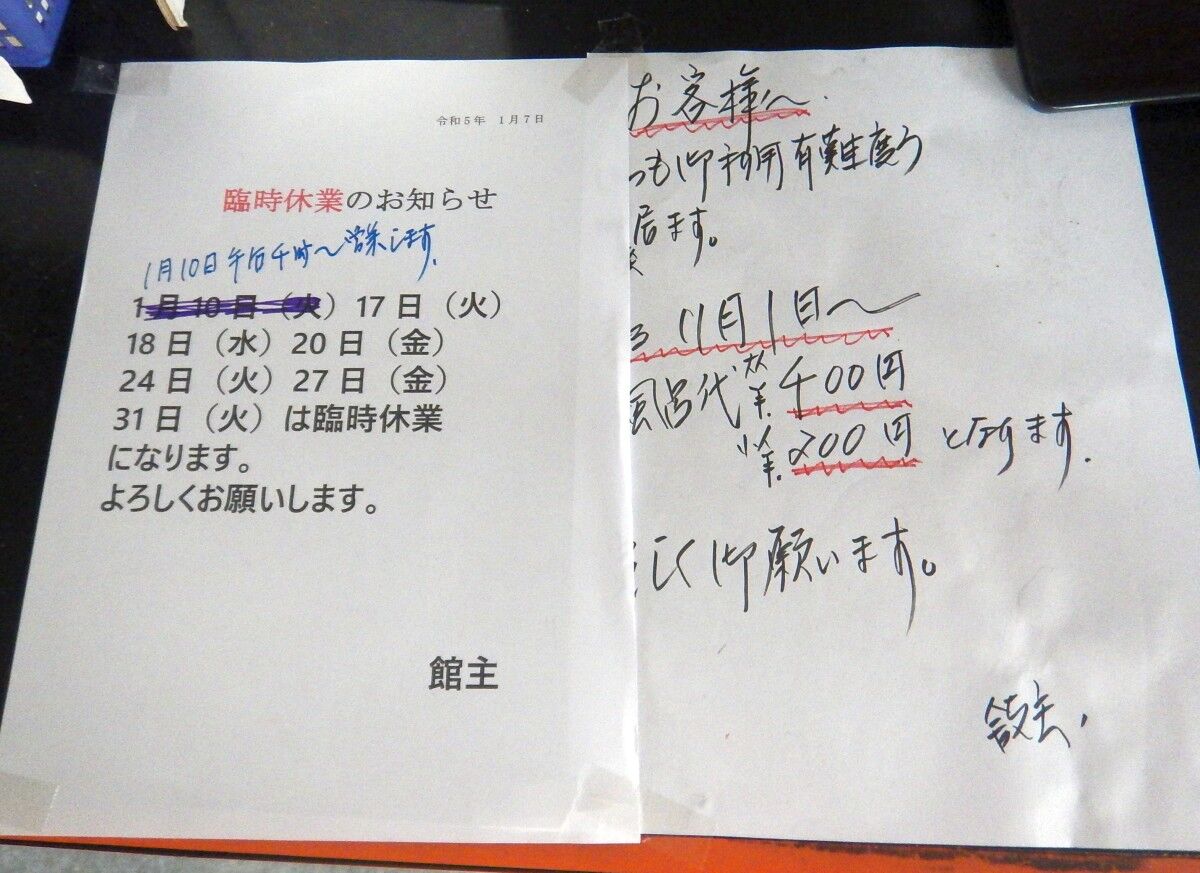 令和5年 1月7日
臨時休業のお知らせ
1月10日午后4時～営業します。
1月10日（火）17日（火）
18日（水）20日（金）
24日（火）27日（金）
31日（火）は臨時休業
になります。
よろしくお願いします。
館主
お客様へ.
つも御利用有難度う
居ます。
11月1日～
風呂代 大人 400円
小人 200円 となります.
しく御願います。
館主